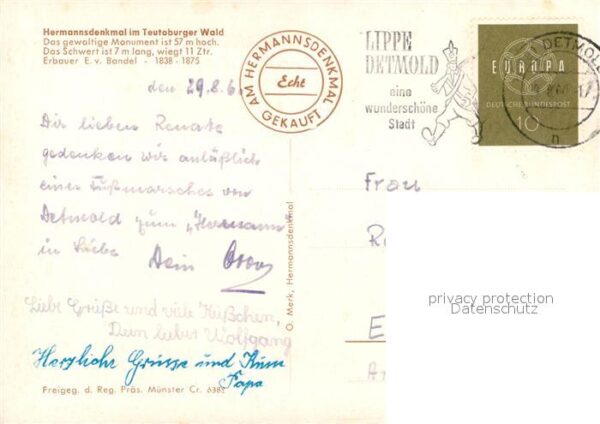 Hermannsdenkmal im Teutoburger Wald
Das gewaltige Monument ist 57 m hoch.
Das Schwert ist 7 m lang, wiegt 11 Ztr.
Erbauer E. v. Bandel - 1838 - 1875
AM HERMANNSDENKMAL
Echt
GEKAUFT
LIPPE
DETMOLD
eine
wunderschöne
Stadt
DETMOLD
EUROPA
DEUTSCHE BUNDESPOST
10
den 29.8.60
Dir lieben Renate
gedenken wir anläßlich
eines Fußmarsches von
Detmold zum "Hermann
in Liebe Dein
Liebe Grüße und viele Küßchen,
Dein lieber Wolfgang
Herzliche Grüsse und Kuss
Papa
Freigeg. d. Reg. Präs. Münster Cr. 6385
O. Merk, Hermannsdenkmal
Frau
privacy protection
Datenschutz